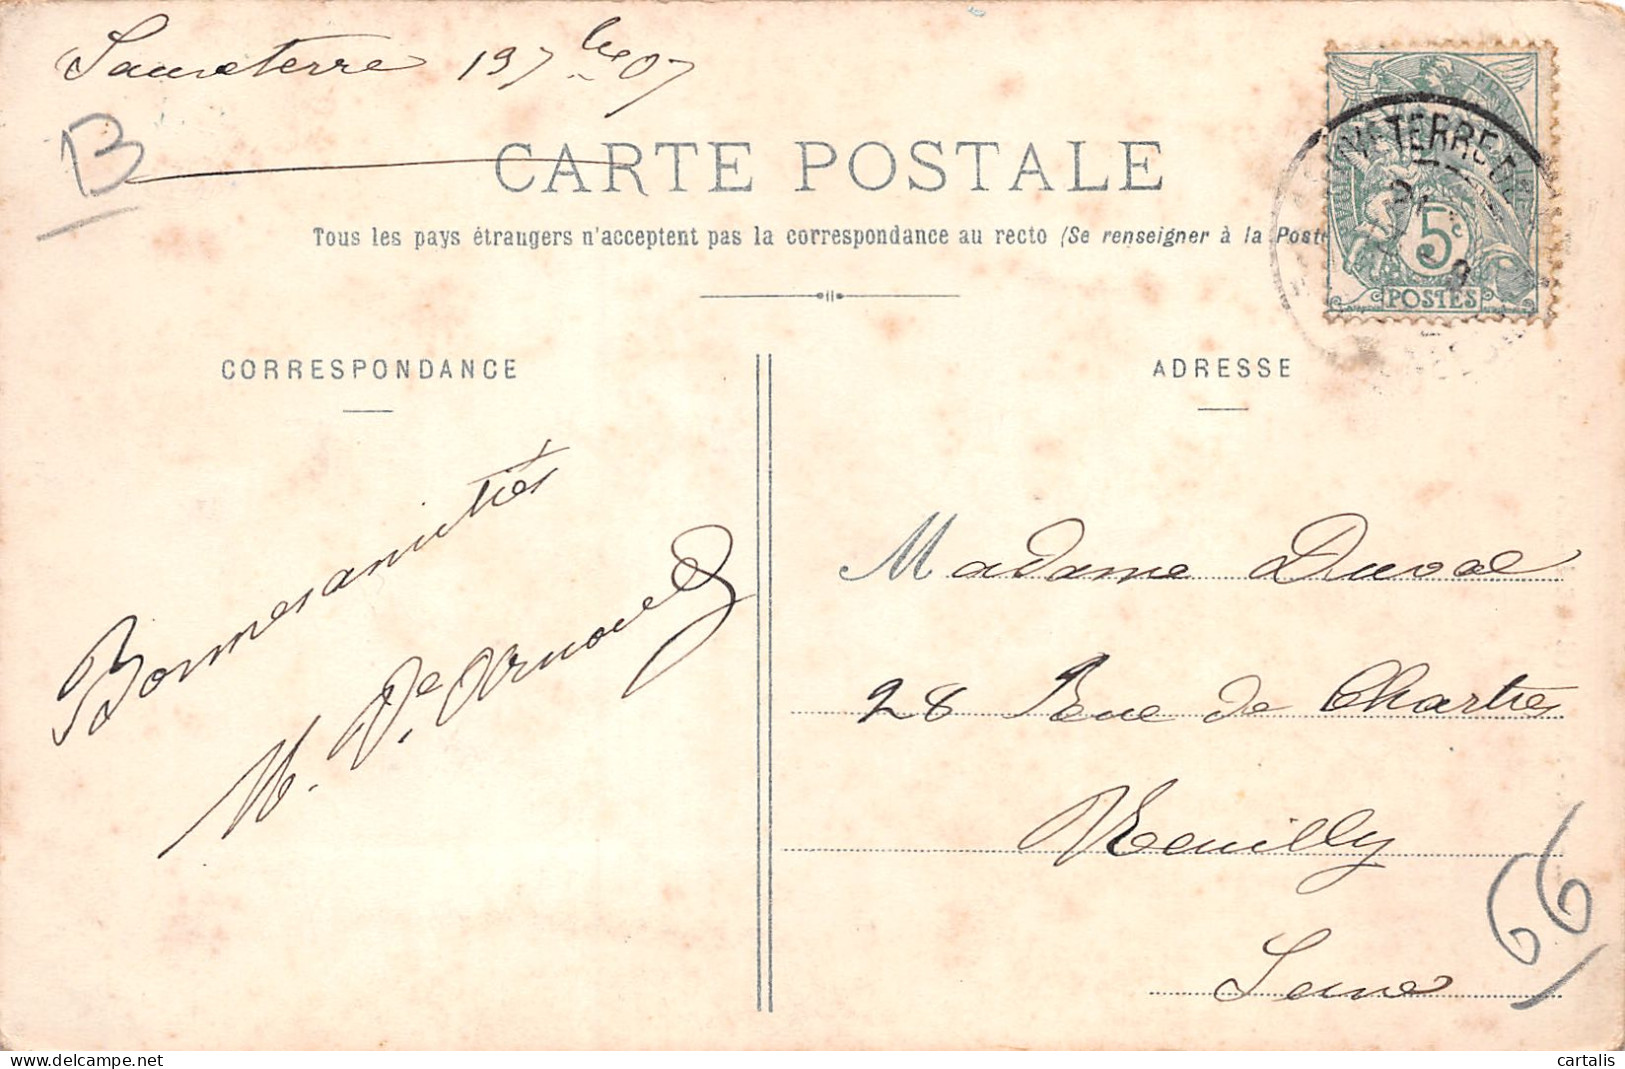 Sauveterre 19 7bre 07
B
CARTE POSTALE
Tous les pays étrangers n'acceptent pas la correspondance au recto (Se renseigner à la Poste
5c
POSTES
CORRESPONDANCE
ADRESSE
Bonnes amitiés
Madame Duval
28 Rue de Chartres
Neuilly
Seine
66
cartalis